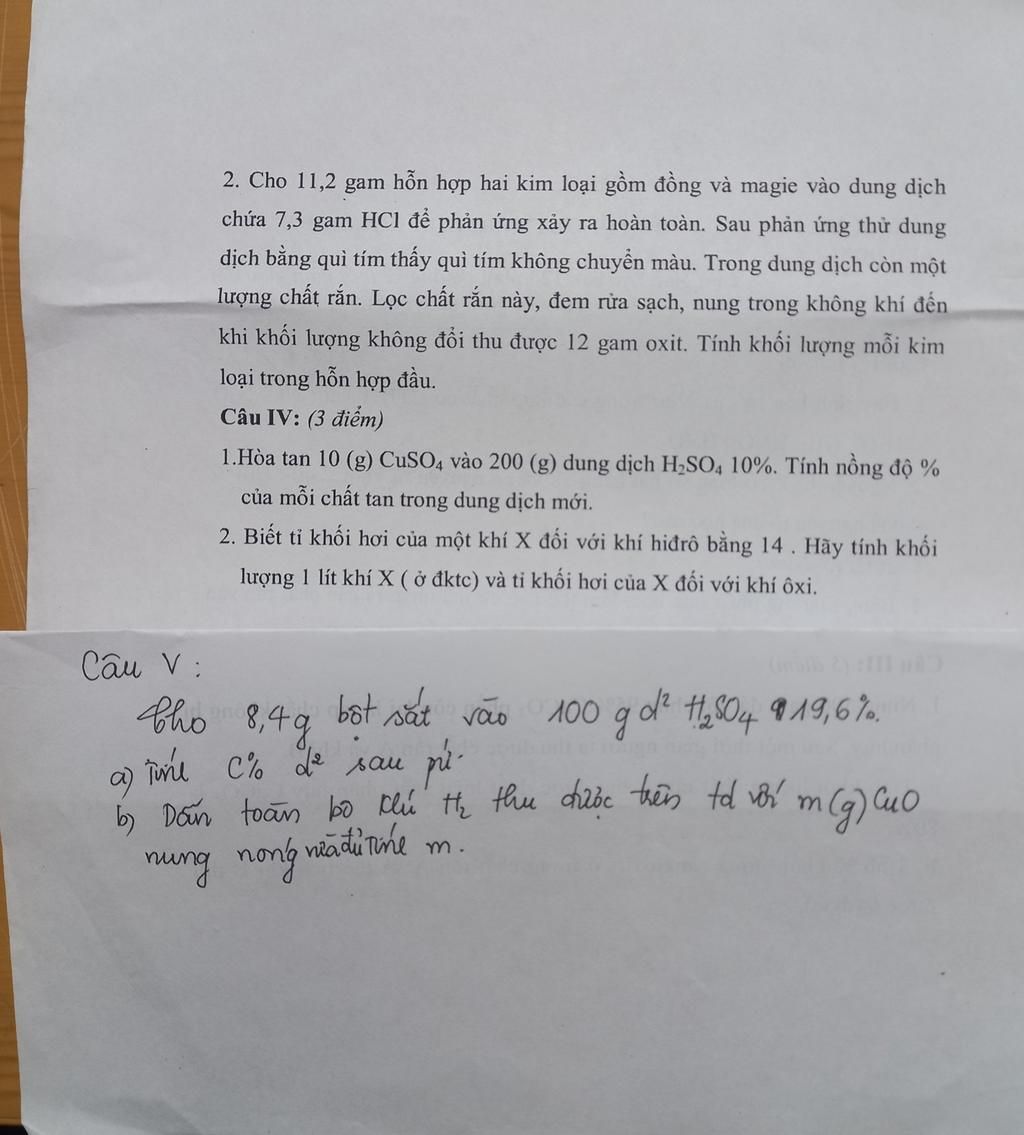 2. Cho 11,2 gam hỗn hợp hai kim loại gồm đồng và magie vào dung dịch
chứa 7,3 gam HCl để phản ứng xảy ra hoàn toàn. Sau phản ứng thử dung
dịch bằng quì tím thấy quì tím không chuyển màu. Trong dung dịch còn một
lượng chất rắn. Lọc chất rắn này, đem rửa sạch, nung trong không khí đến
khi khối lượng không đổi thu được 12 gam oxit. Tính khối lượng mỗi kim
loại trong hỗn hợp đầu.
Câu IV: (3 điểm)
1.Hòa tan 10 (g) CuSO₄ vào 200 (g) dung dịch H₂SO₄ 10%. Tính nồng độ %
của mỗi chất tan trong dung dịch mới.
2. Biết tỉ khối hơi của một khí X đối với khí hiđrô bằng 14 . Hãy tính khối
lượng 1 lít khí X ( ở đktc) và tỉ khối hơi của X đối với khí ôxi.
Câu V :
Cho 8,4g bột sắt vào 100 g d² H₂SO₄ 19,6%.
a) Tính C% d² sau pứ.
b) Dẫn toàn bộ khí H₂ thu được trên td với m(g) CuO
nung nóng vừa đủ Tính m.